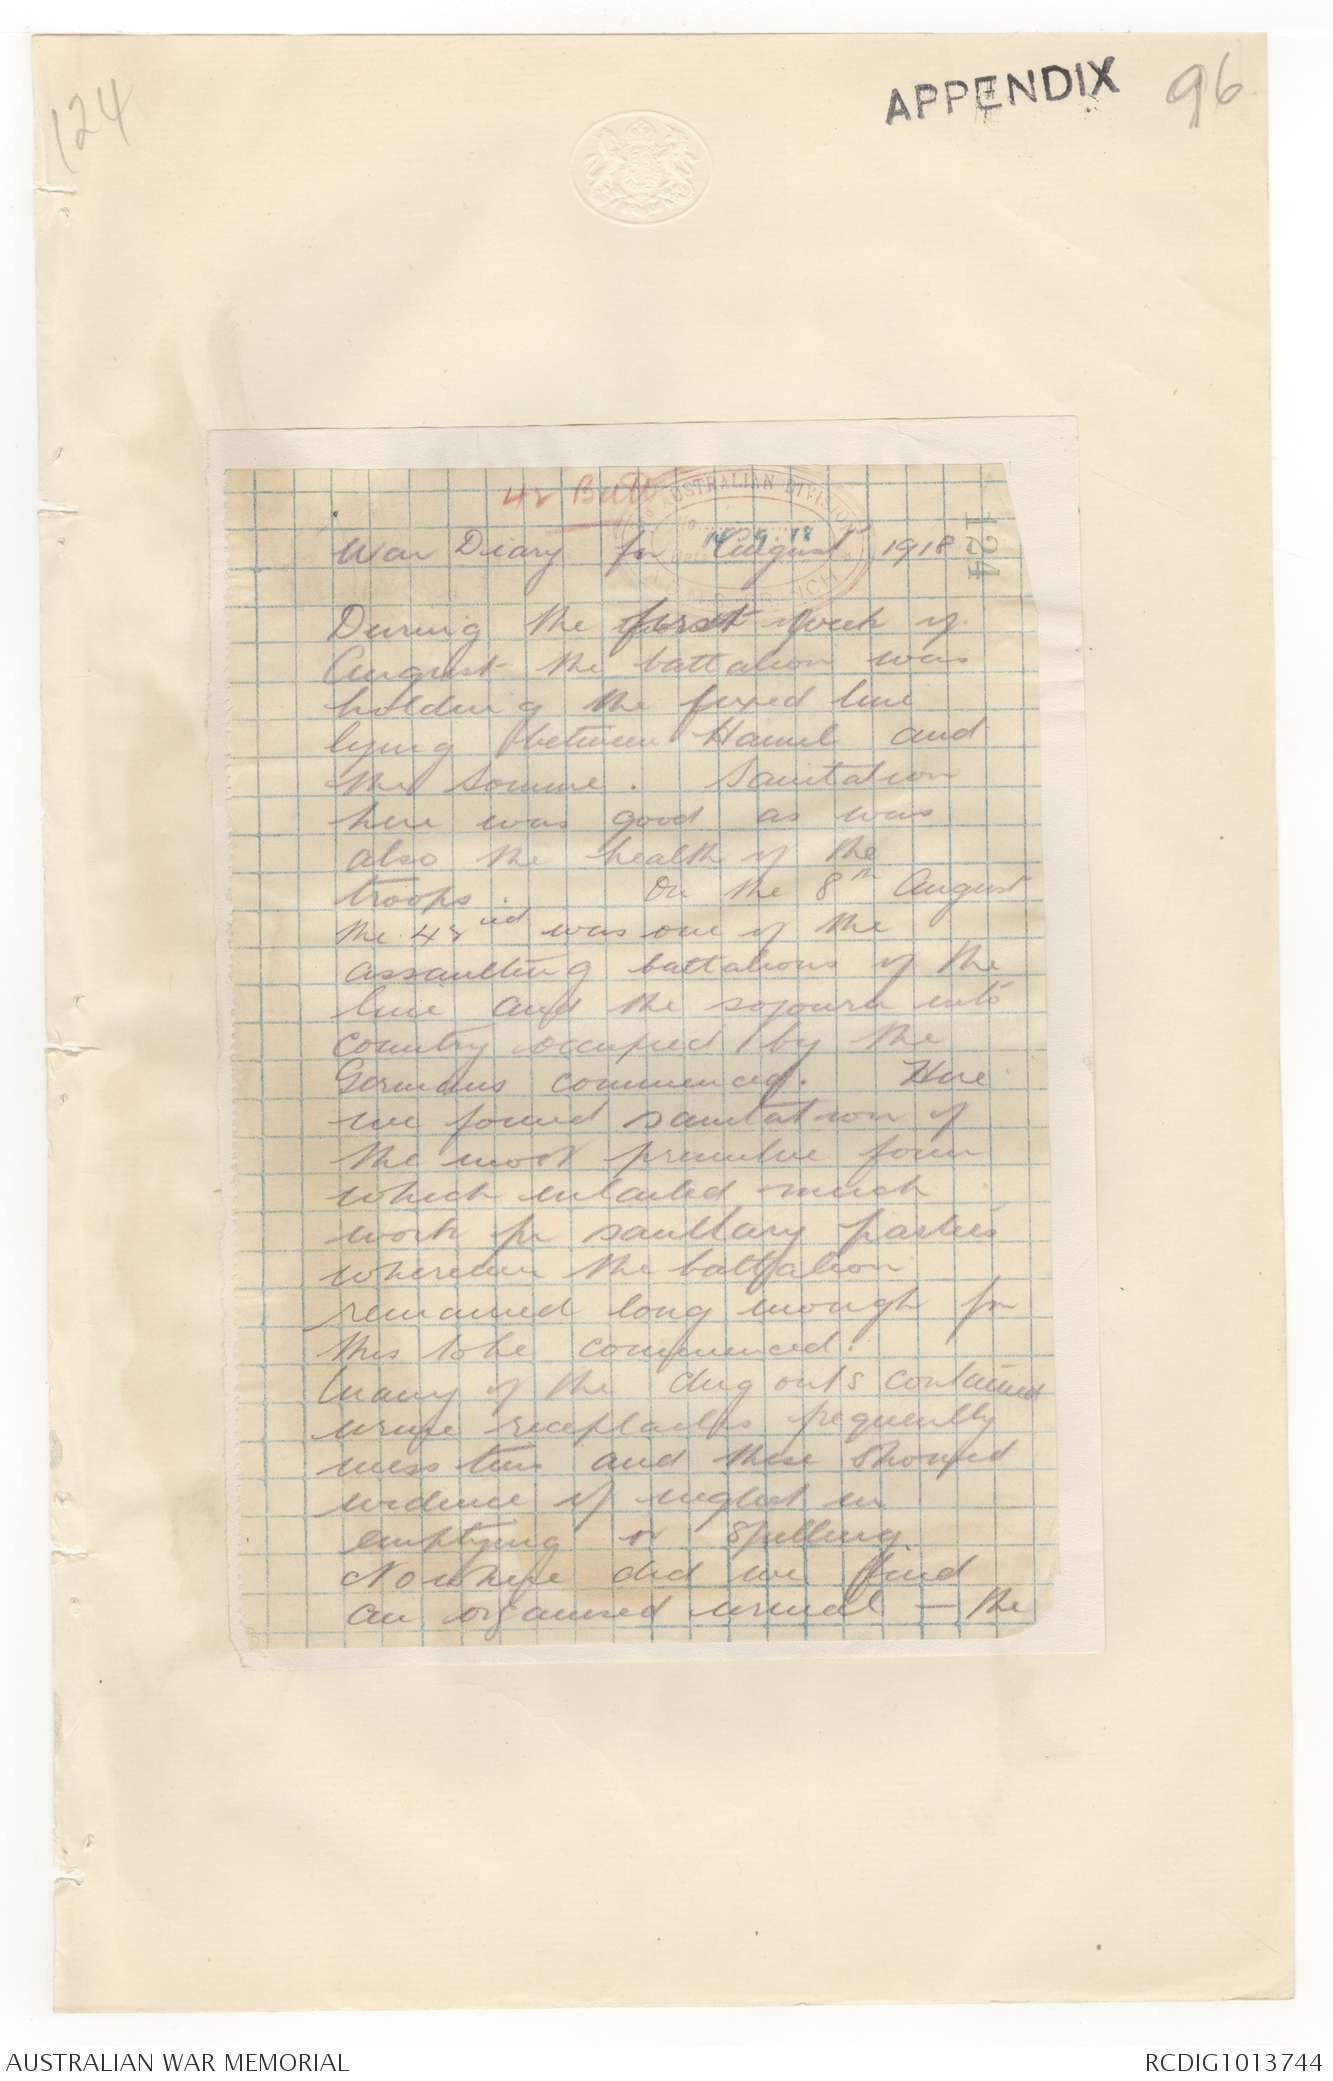 124
APPENDIX 96
42 Battn
AUSTRALIAN DIVISION
14.9.18
War Diary for August 1918
124
During the first week of
August the battalion was
holding the fixed line
lying between Hamel and
the Somme. Sanitation
here was good as was
also the health of the
troops. On the 8th August
the 42nd was one of the
assaulting battalions of the
line and the sojourn into
country occupied by the
Germans commenced. Here
we found sanitation of
the most primitive form
which entailed much
work for sanitary parties
wherever the battalion
remained long enough for
this to be commenced.
Many of the dug outs contained
urine receptacles frequently
mess tins and these showed
evidence of neglect in
emptying or spilling.
Nowhere did we find
an organised urinal — the
AUSTRALIAN WAR MEMORIAL
RCDIG1013744